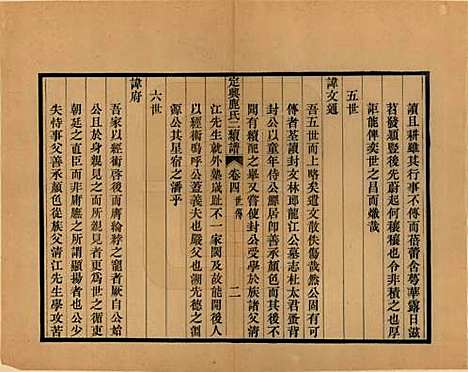 讀且耕雖其行事不傳而蓓蕾含萼華露日滋
苕發穎豎後先蔚起何穰穰也今非積之也厚
詎能俾奕世之昌而熾哉
五世
諱文通
吾五世而上略矣遺文散佚傷哉然公固有可
傳者荃讀封文林郎龍江公墓志杜太君數歲
封公以童年侍公膝居卽善承顏色而其後不
聞有續配之舉又嘗使封公受學於族諸父清
定興鹿氏二續譜
卷四 世傳
二
江先生就外塾咸趾不一家閾及故能開後人
以經術嗚呼公蓋義夫也嚴父也溯先德之淵
源公其星宿之濬乎
六世
諱府
吾家以經術啓後而膺綸綍之寵者厥自公始
公且於身親見之而所親見者更為世之循吏
朝廷之直臣而非庸庸顯揚者也公少
失恃事父善承顏色從族父清江先生學攻苦